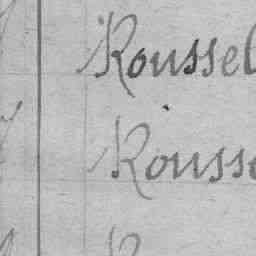 Roussel
Rousse